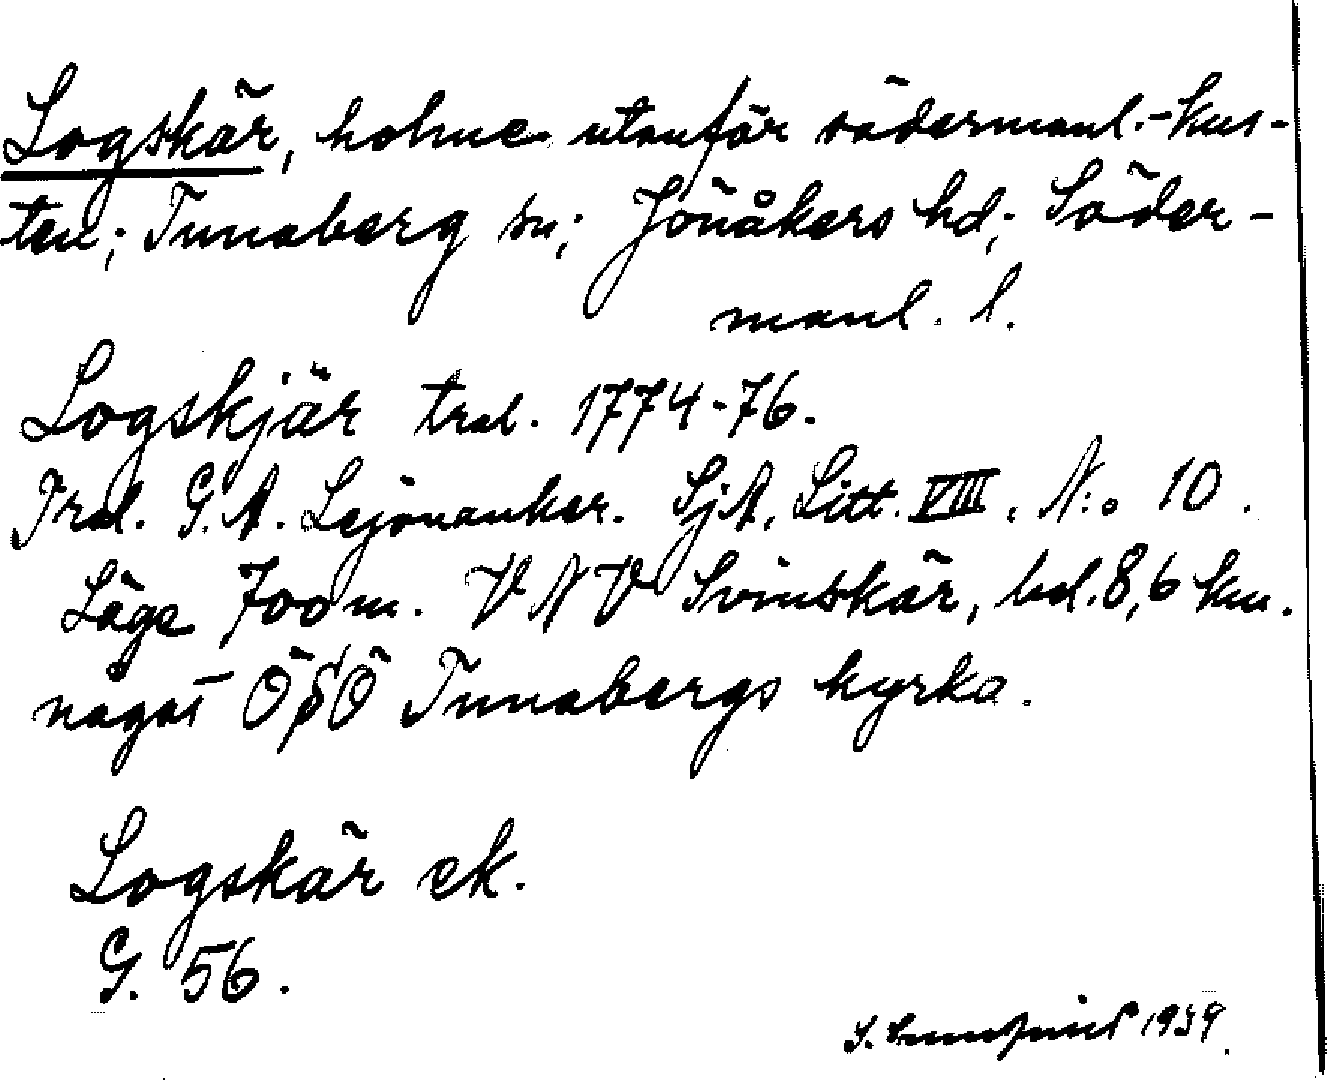 Logskär, holme utanför södermanl.-kus-
ten; Tunaberg sn; Jönåkers hd; Söder-
manl. l.
Logskjär tral. 1774-76.
Tral. G. A. Lejonanker. SjA, Litt. VIII, N:o 10.
Läge 700 m. VNV Svinskär, bel. 8,6 km.
något ÖSÖ Tunabergs kyrka.
Logskär ek.
G. 56.
1939.